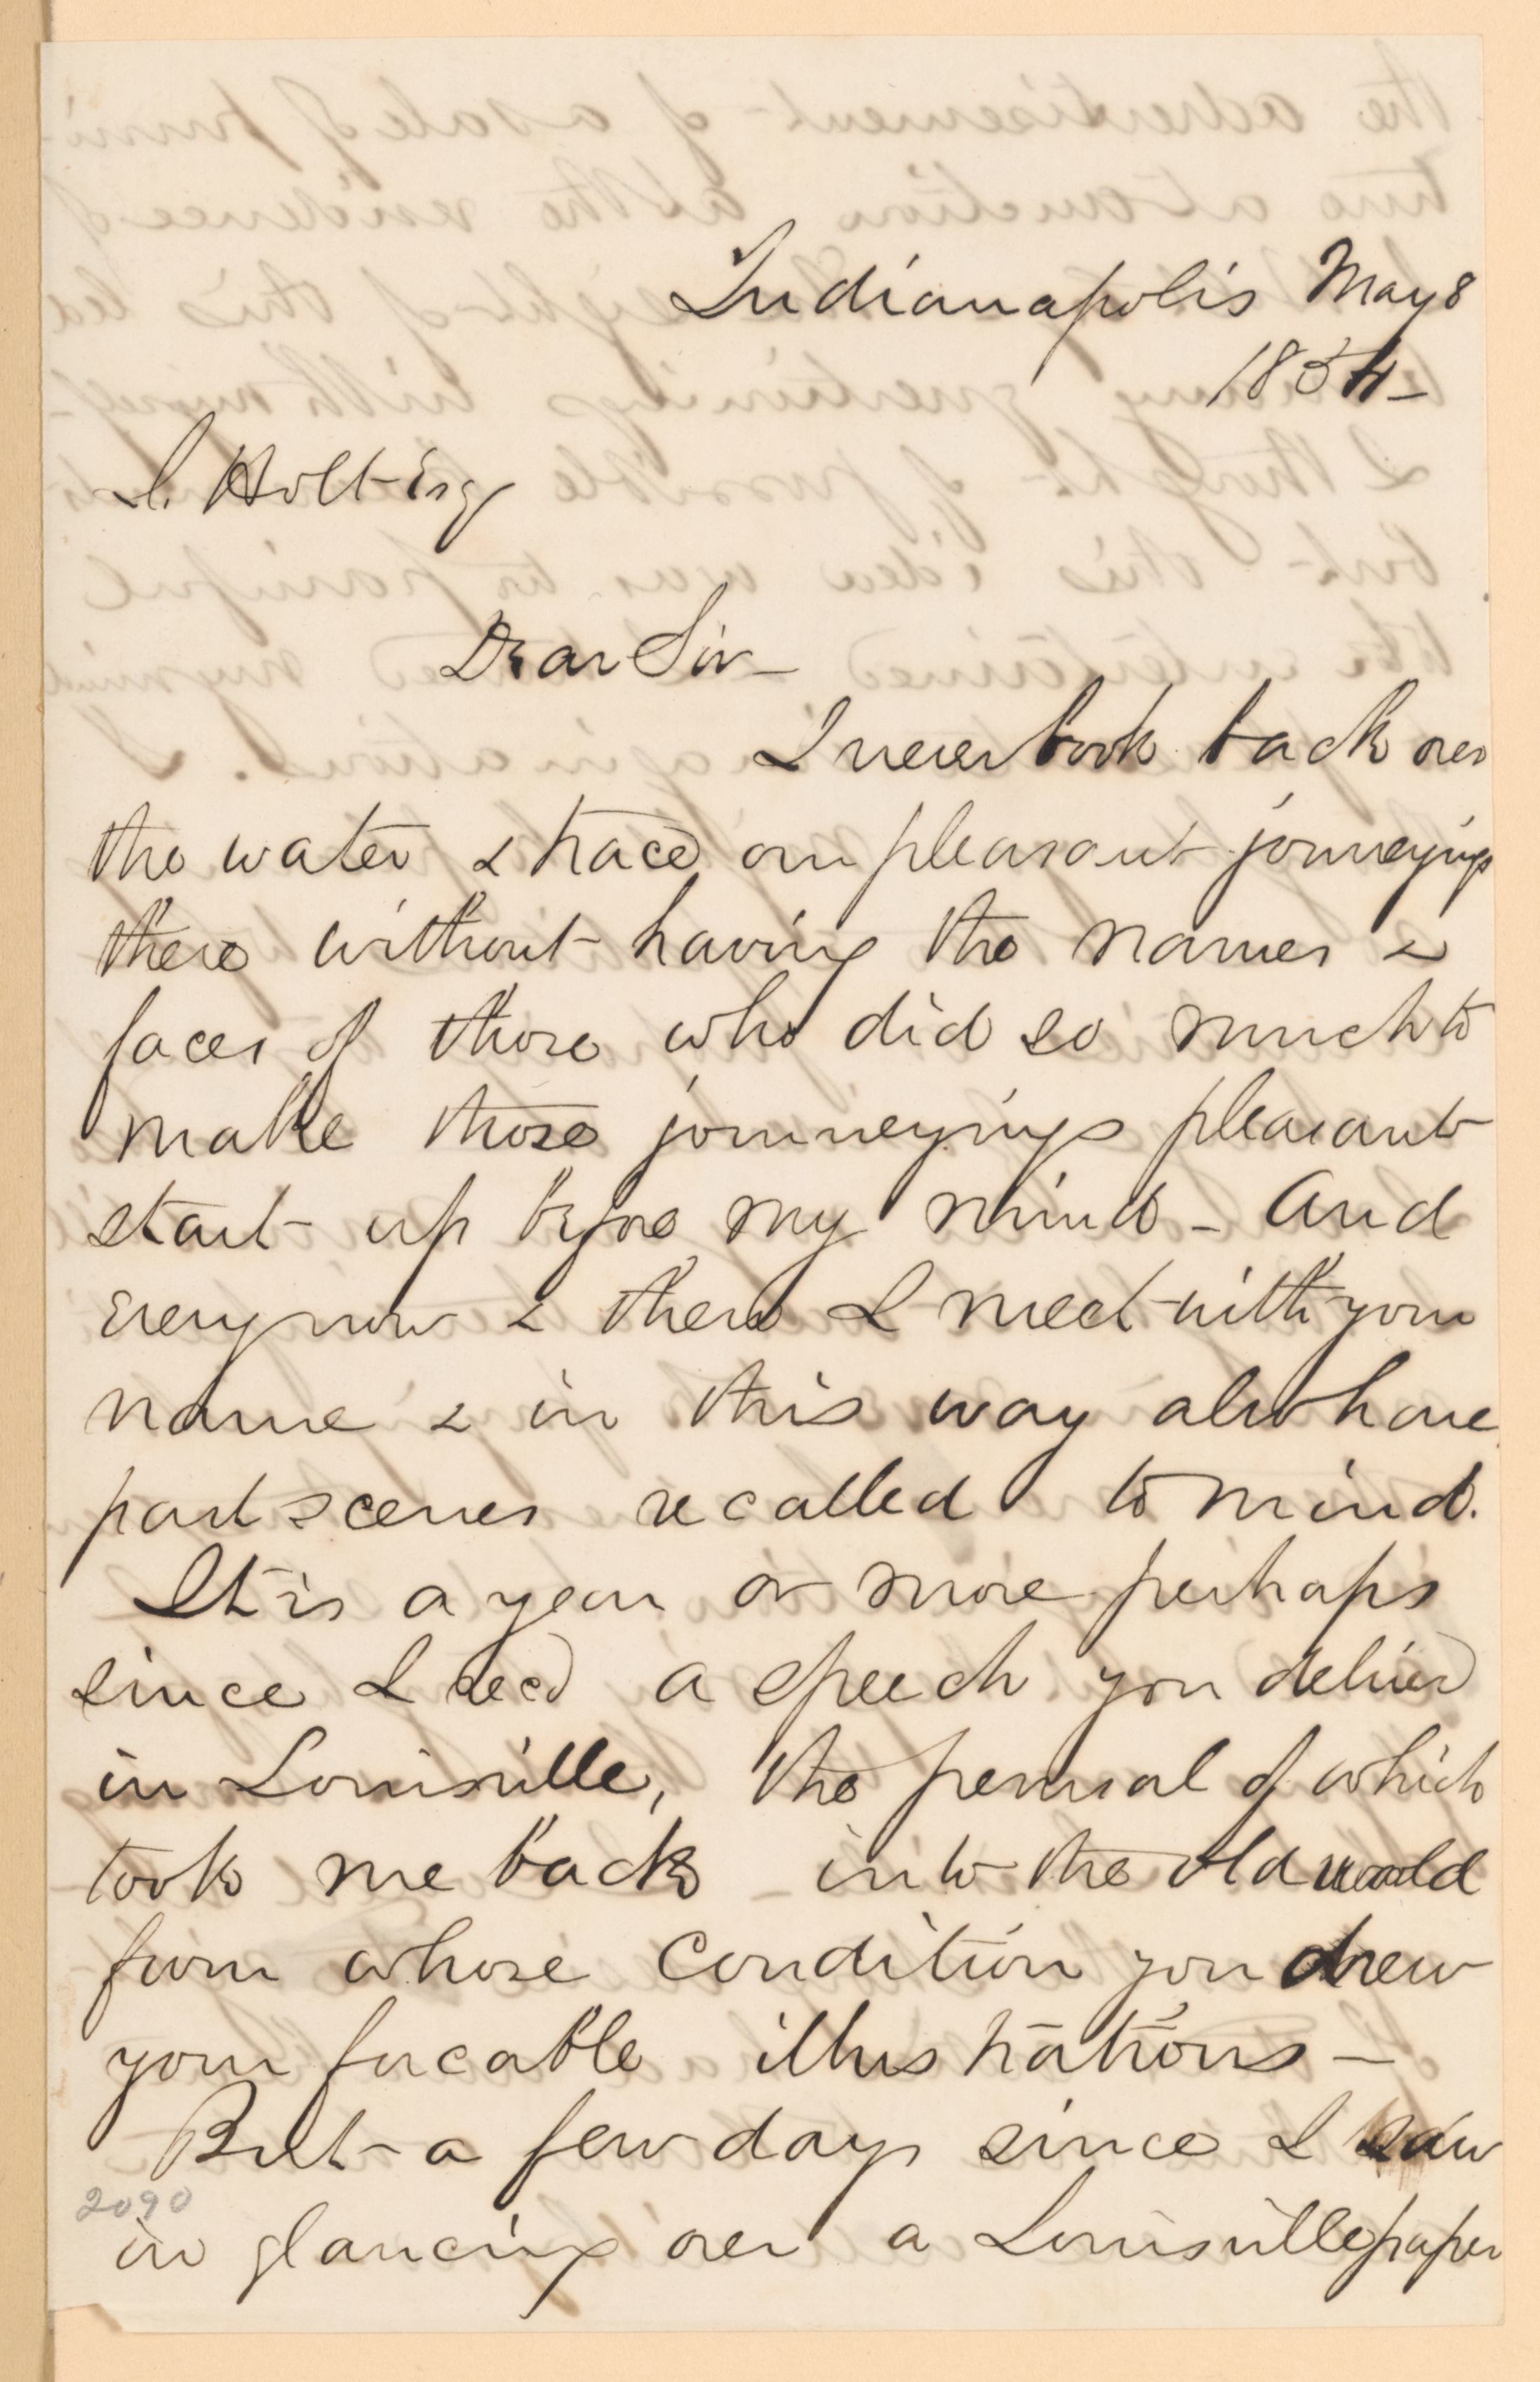 Indianapolis May 8
1854-
J. Holt Esq
Dear Sir-
I never look back over
the water & trace our pleasant journeyings
there without having the names &
faces of those who did so much to
make those journeyings pleasant
start up before my mind - And
every now & then I meet with your
name & in this way also have
past scenes recalled to mind.
It is a year or more perhaps
since I recd a speech you deliverd
in Louisville, the perusal of which
took me back into the old world
from whose condition you drew
your forcable illustrations -
But a few days since I saw
2090
in glancing over a Louisville paper